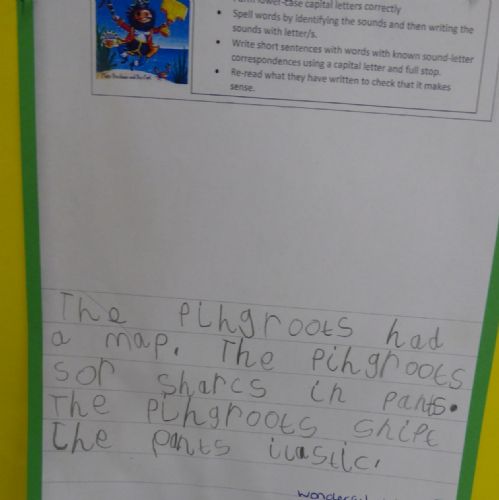 lower-case capital letters correctly
• Spell words by identifying the sounds and then writing the
sounds with letter/s.
• Write short sentences with words with known sound-letter
correspondences using a capital letter and full stop.
• Re-read what they have written to check that it makes
sense.
The pihgroots had
a map. The pihgroots
sor sharcs in pants.
The pihgroots snipt
the pants ilastic.